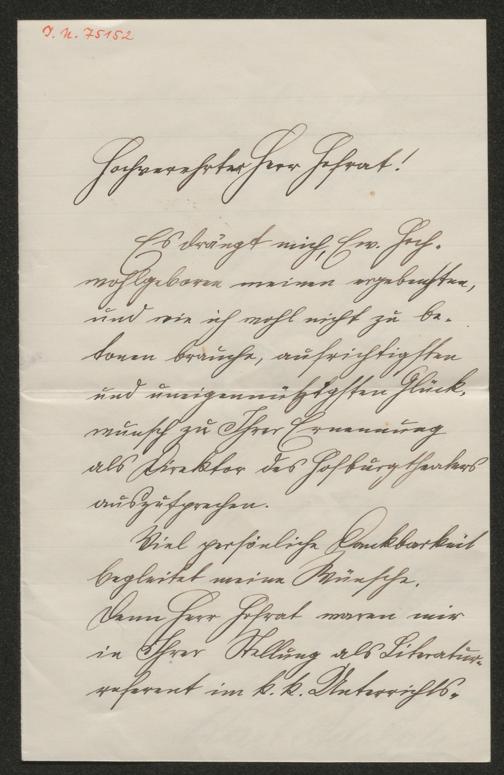 J. N. 75152
Hochverehrter Herr Hofrat!
Es drängt mich, Ew. Hoch-
wohlgeboren meinen ergebensten,
und wie ich wohl nicht zu be-
tonen brauche, aufrichtigsten
und uneigennützigsten Glück-
wunsch zu Ihrer Ernennung
als Direktor des Hofburgtheaters
auszusprechen.
Viel persönliche Dankbarkeit
begleitet meine Wünsche.
Denn Herr Hofrat waren mir
in Ihrer Stellung als Literatur-
referent im k. k. Unterrichts-